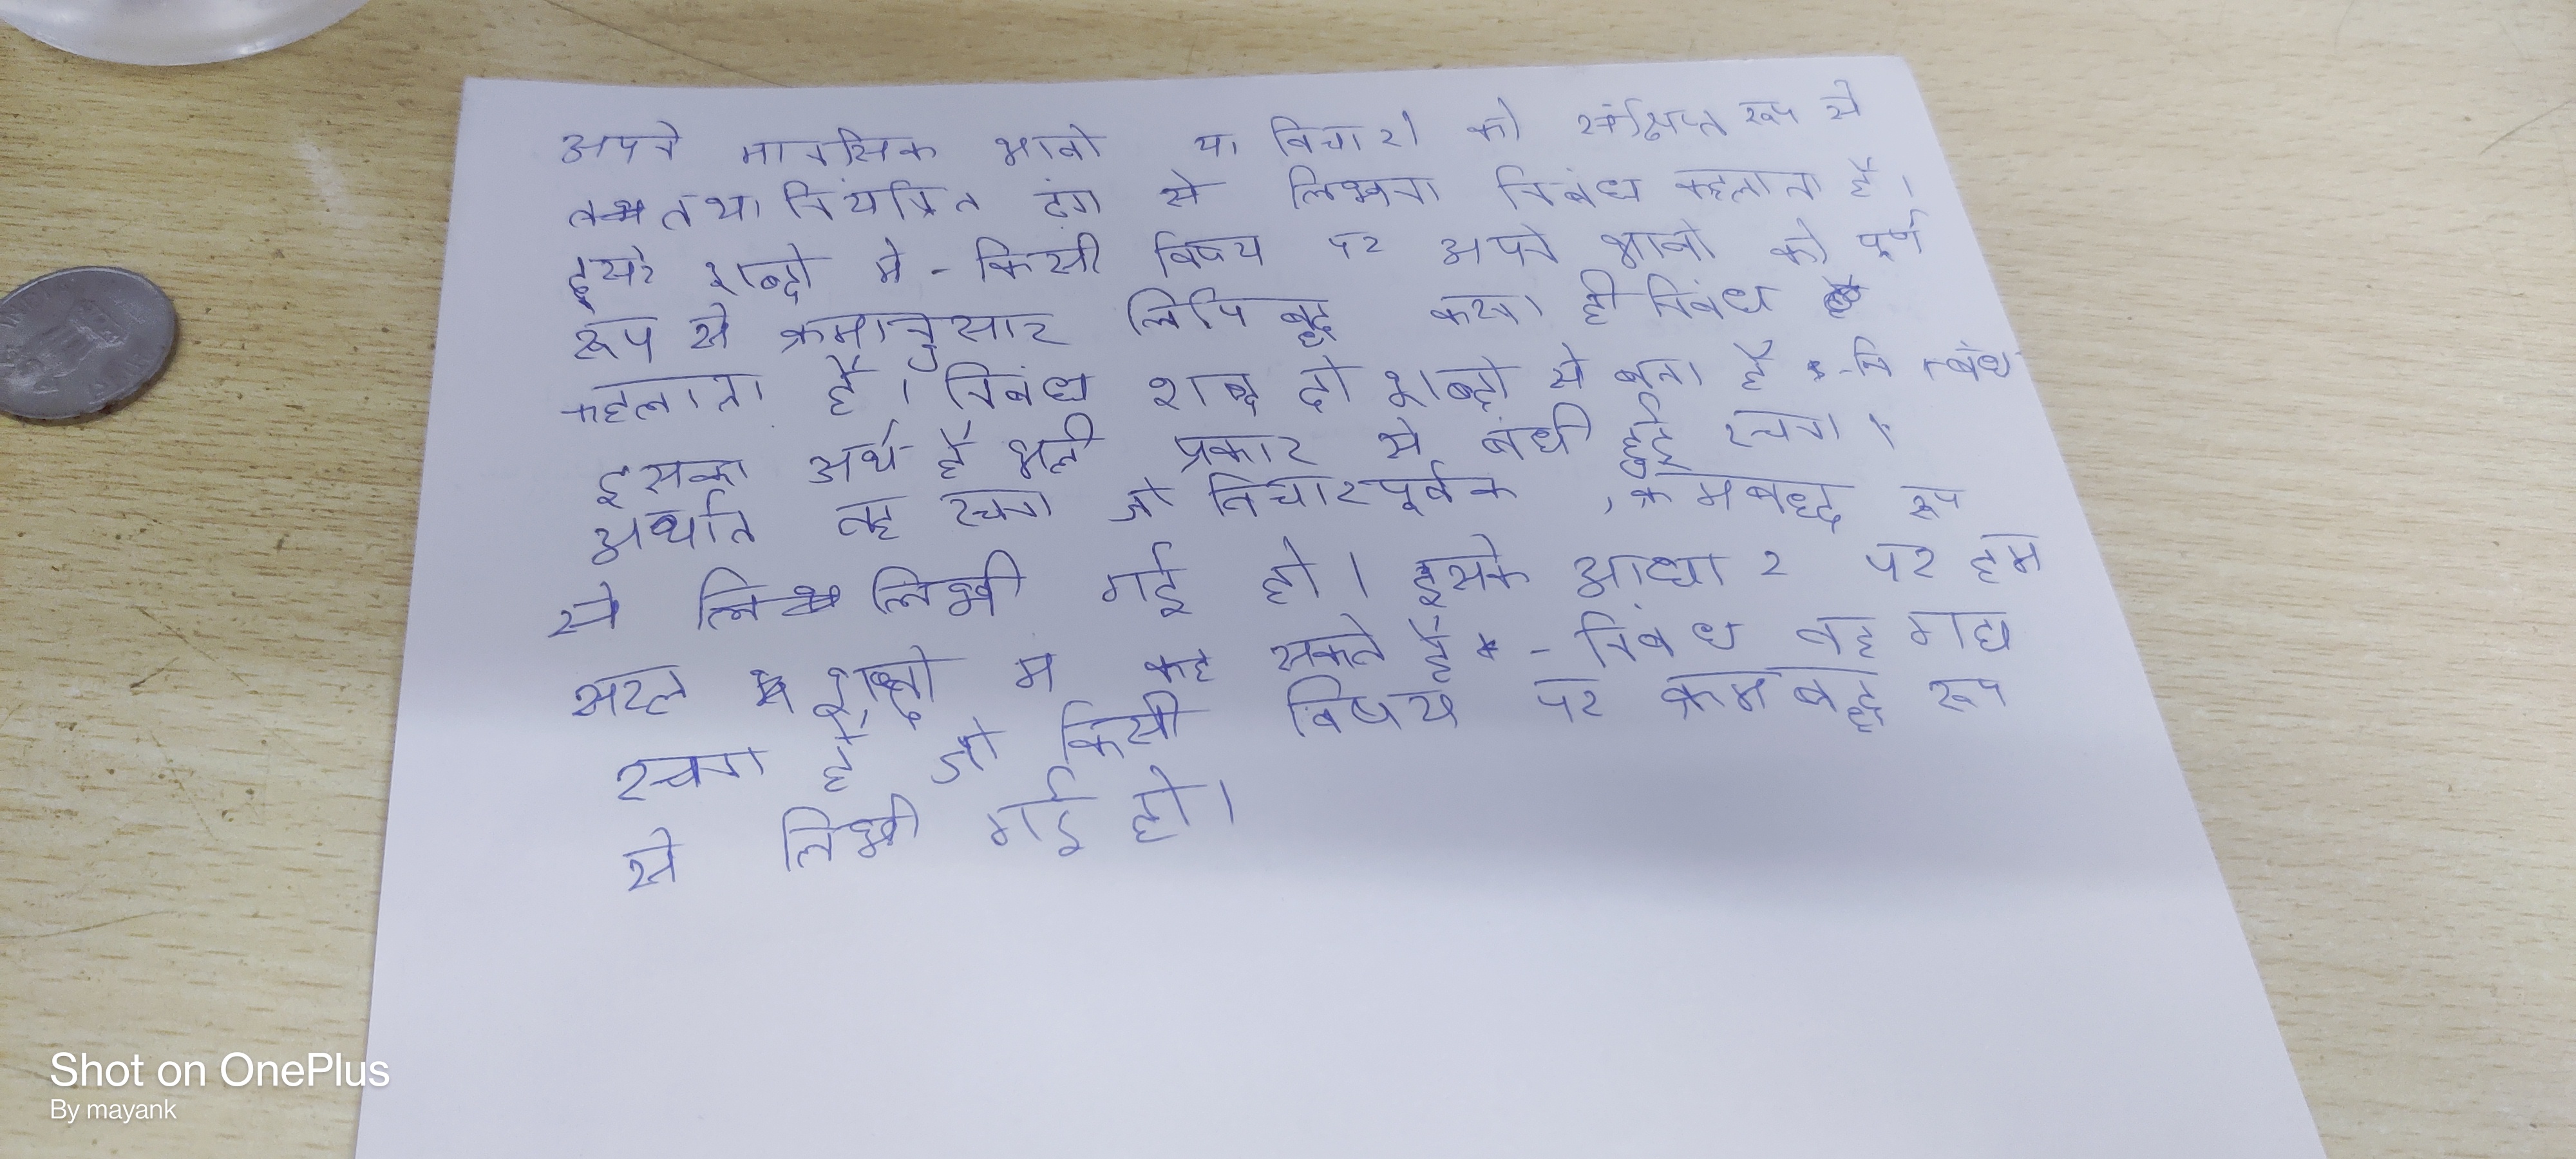 अपने मानसिक भावो या विचारो को संक्षिप्त रूप से
तथा नियंत्रित ढंग से लिखना निबंध कहलाता है।
दुसरे शब्दो मे - किसी विषय पर अपने भावो को पूर्ण
रूप से क्रमानुसार लिपि बद्ध करना ही निबंध
कहलाता है। निबंध शब्द दो शब्दो से बना है - नि + बंध
इसका अर्थ है भली प्रकार से बंधी हुई रचना।
अर्थात वह रचना जो विचारपूर्वक , क्रमबध्द रूप
से लिखी गई हो। इसके आधार पर हम
सरल शब्दो म कह सकते है - निबंध वह गद्य
रचना है, जो किसी विषय पर क्रमबद्ध रूप
से लिखी गई हो।
Shot on OnePlus
By mayank